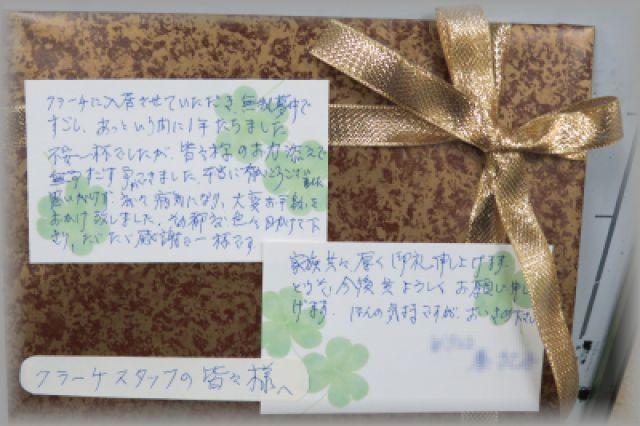 クラーチに入居させていただき無我夢中で
すごし、あっという間に1年たちました
不安一杯でしたが、皆々様のお力添えで
無事すごす事ができました。本当に有がとうござい
思いがけず、我々病気になり、大変お手数を
おかけ致しました。その都度色々助けて下
さり、ただただ感謝で一杯です。
家族共々、厚く御礼申し上げます
どうぞ、今後共よろしくお願い申し
げます。ほんの気持ですが、おいさめ下さい
クラーケスタッフの皆々様へ